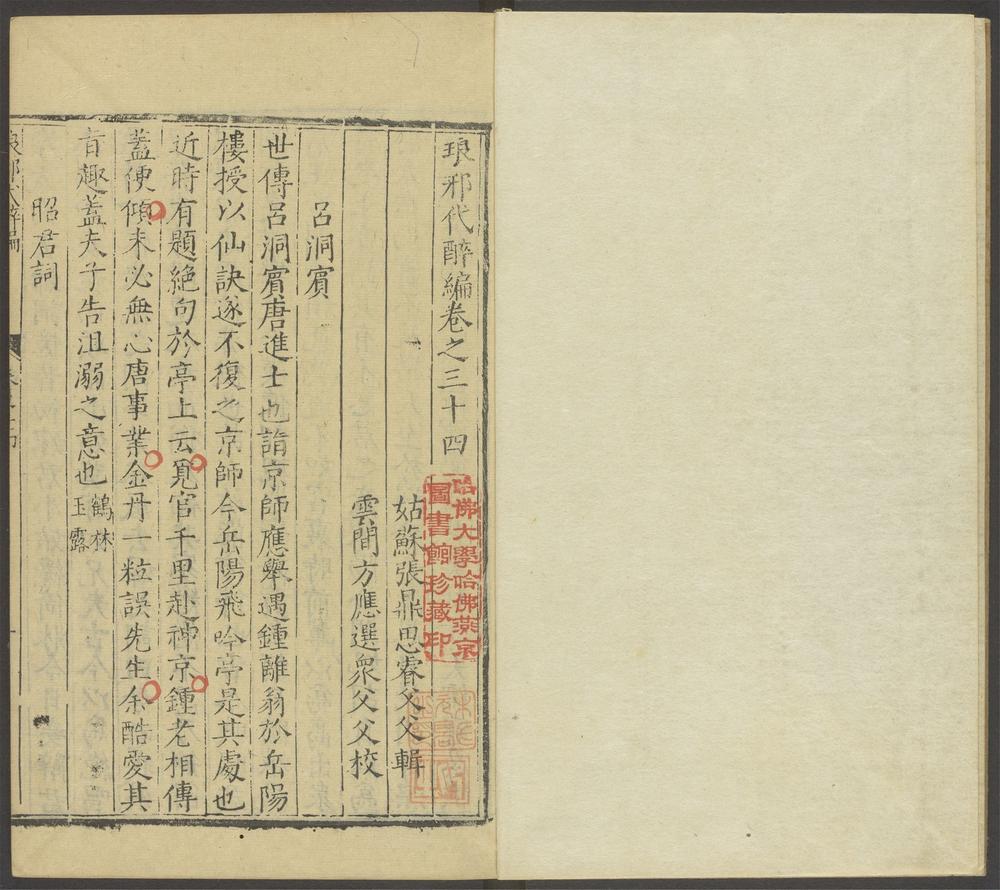 琅邪代醉編卷之三十四
姑蘇張鼎思睿父父輯
雲間方應選衆父父校
呂洞賓
世傳呂洞賓唐進士也詣京師應舉遇鍾離翁於岳陽
樓授以仙訣遂不復之京師今岳陽飛吟亭是其處也
近時有題絕句於亭上云覓官千里赴神京鍾老相傳
蓋便傾未必無心唐事業金丹一粒誤先生余酷愛其
音趣蓋夫子告沮溺之意也鶴林玉露
昭君詞
哈佛大學哈佛燕京
圖書館珍藏印